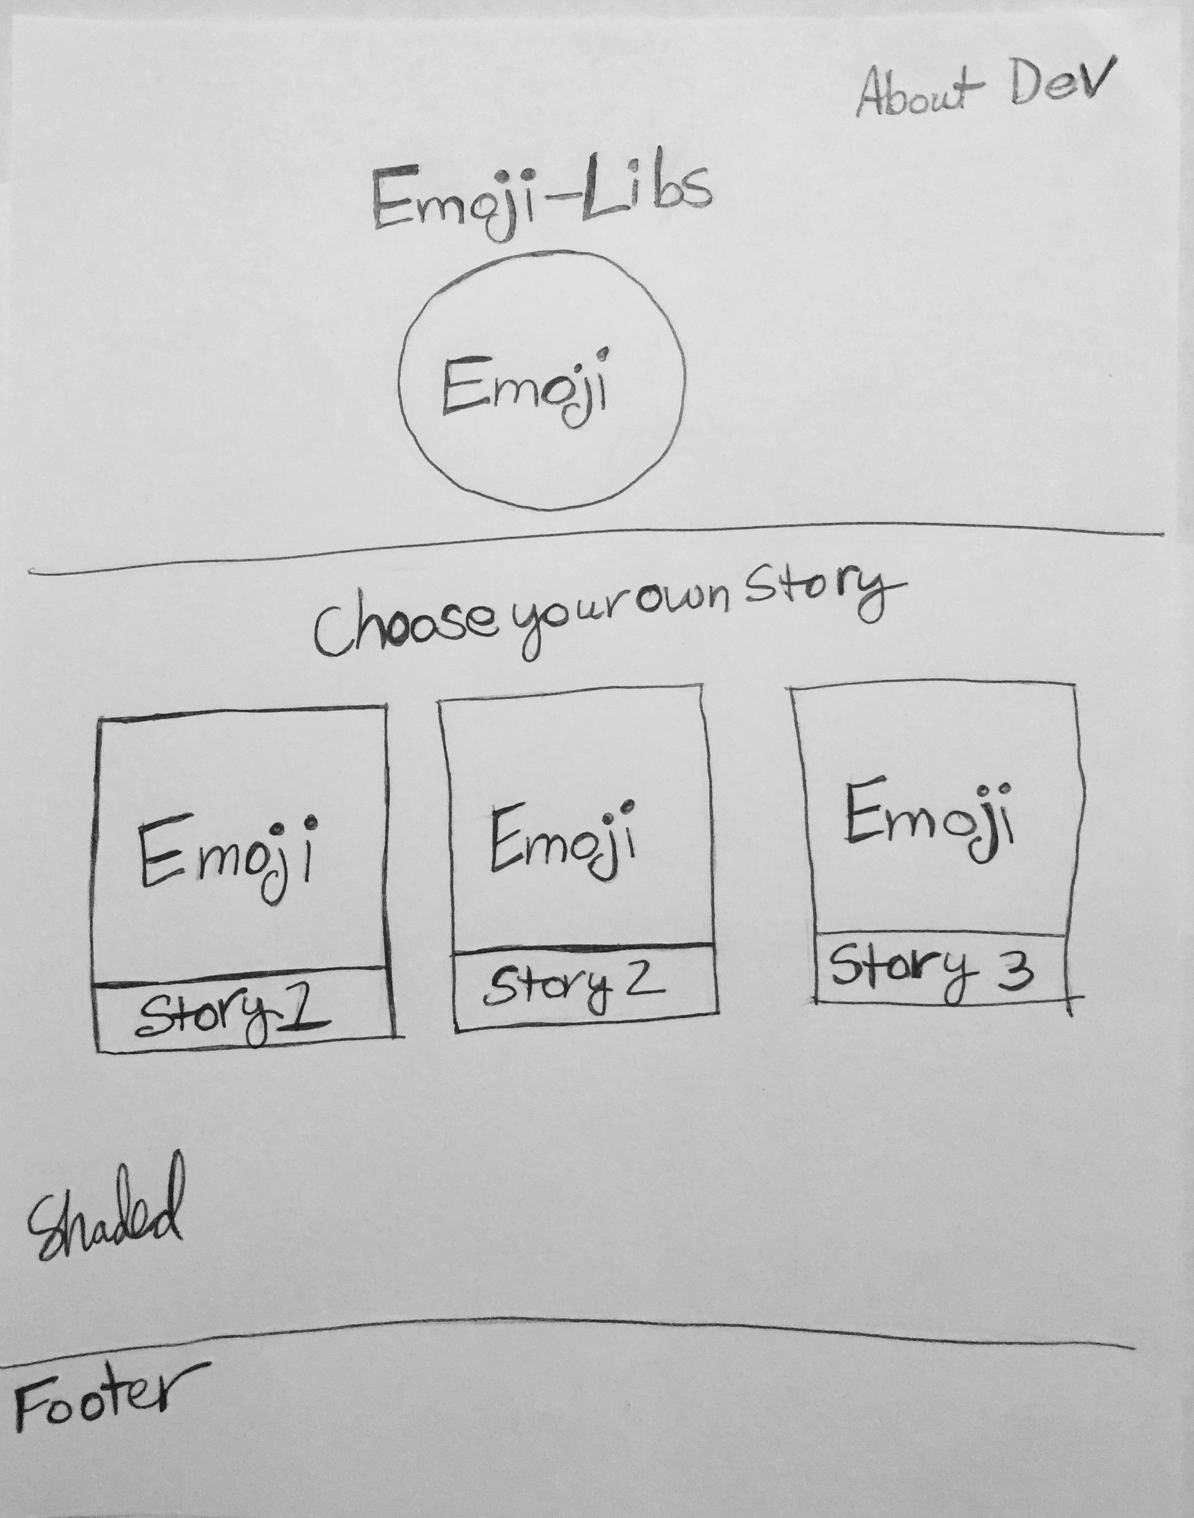 About Dev
Emoji-Libs
Emoji
Choose your own Story
Emoji
Emoji
Emoji
Story 1
Story 2
Story 3
Shaded
Footer